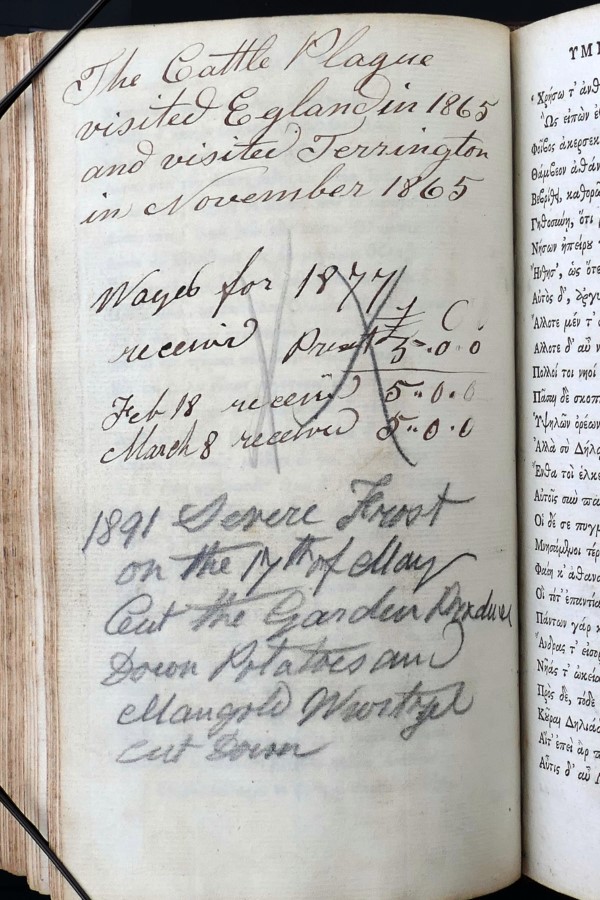 The Cattle Plague
visited Egland in 1865
and visited Terrington
in November 1865
Wages for 1877
received 5.0.0
Feb 18 received 5.0.0
March 8 received 5.0.0
1891 Severe Frost
on the 17th of May
Cut the Garden
Down Potatoes and
Mangold Wurtzel
Cut Down
ΥΜ
Χρήσω τ' ἀνθ
Ὣς εἰπὼν ἐ
Φοῖβος ἀκερσεκ
Θάμβεον ἀθάν
Γηθοσύνη, ὅτι
Νήσων ἠπείρου τ
Ἤνθησ', ὡς ὅτε
Αὐτὸς δ', ἀργυ
Ἄλλοτε μέν τ'
Ἄλλοτε δ' αὖ ν
Πολλοί τοι νηοὶ
Πᾶσαι δὲ σκοπ
Ὑψηλῶν ὀρέων
Ἀλλὰ σὺ Δήλ
Ἔνθα τοι ἑλκε
Αὐτοῖς σὺν πα
Οἱ δέ σε πυγμ
Μνησάμενοι τέρ
Φαίη κ' ἀθανα
Οἳ τότ' ἐπαντία
Πάντων γάρ κ
Ἄνδρας τ' εἰσορ
Νῆάς τ' ὠκεία
Πρὸς δέ, τόδε
Κοῦραι Δηλιάδ
Αἵτ' ἐπεὶ ἂρ π
Αὖτις δ' αὖ Λ